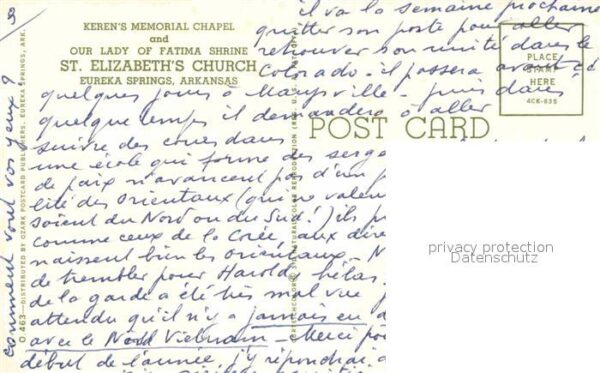 KEREN'S MEMORIAL CHAPEL
and
OUR LADY OF FATIMA SHRINE
ST. ELIZABETH'S CHURCH
EUREKA SPRINGS, ARKANSAS
PLACE
STAMP
HERE
4CK-635
POST CARD
O.463—DISTRIBUTED BY OZARK POSTCARD PUBLISHERS, EUREKA SPRINGS, ARK.
comment vont vos yeux ?
il va la semaine prochaine
quitter son poste pour aller
retrouver son unité dans le
Colorado - il passera avant
quelques jours à Marysville - puis dans
quelque temps il demandera à aller
suivre des cours dans
une école qui forme des
de paix n'avancent pas d'un
lité des orientaux (qui ne
soient du Nord ou du Sud!) ils
comme ceux de la Corée, aux
naissent bien les orientaux -
de trembler pour Harold hélas
de la garde a été très mal vue
attendu qu'il n'y a jamais eu
avec le Nord Vietnam - Merci
début de l'année, j'y répondrai
privacy protection
Datenschutz